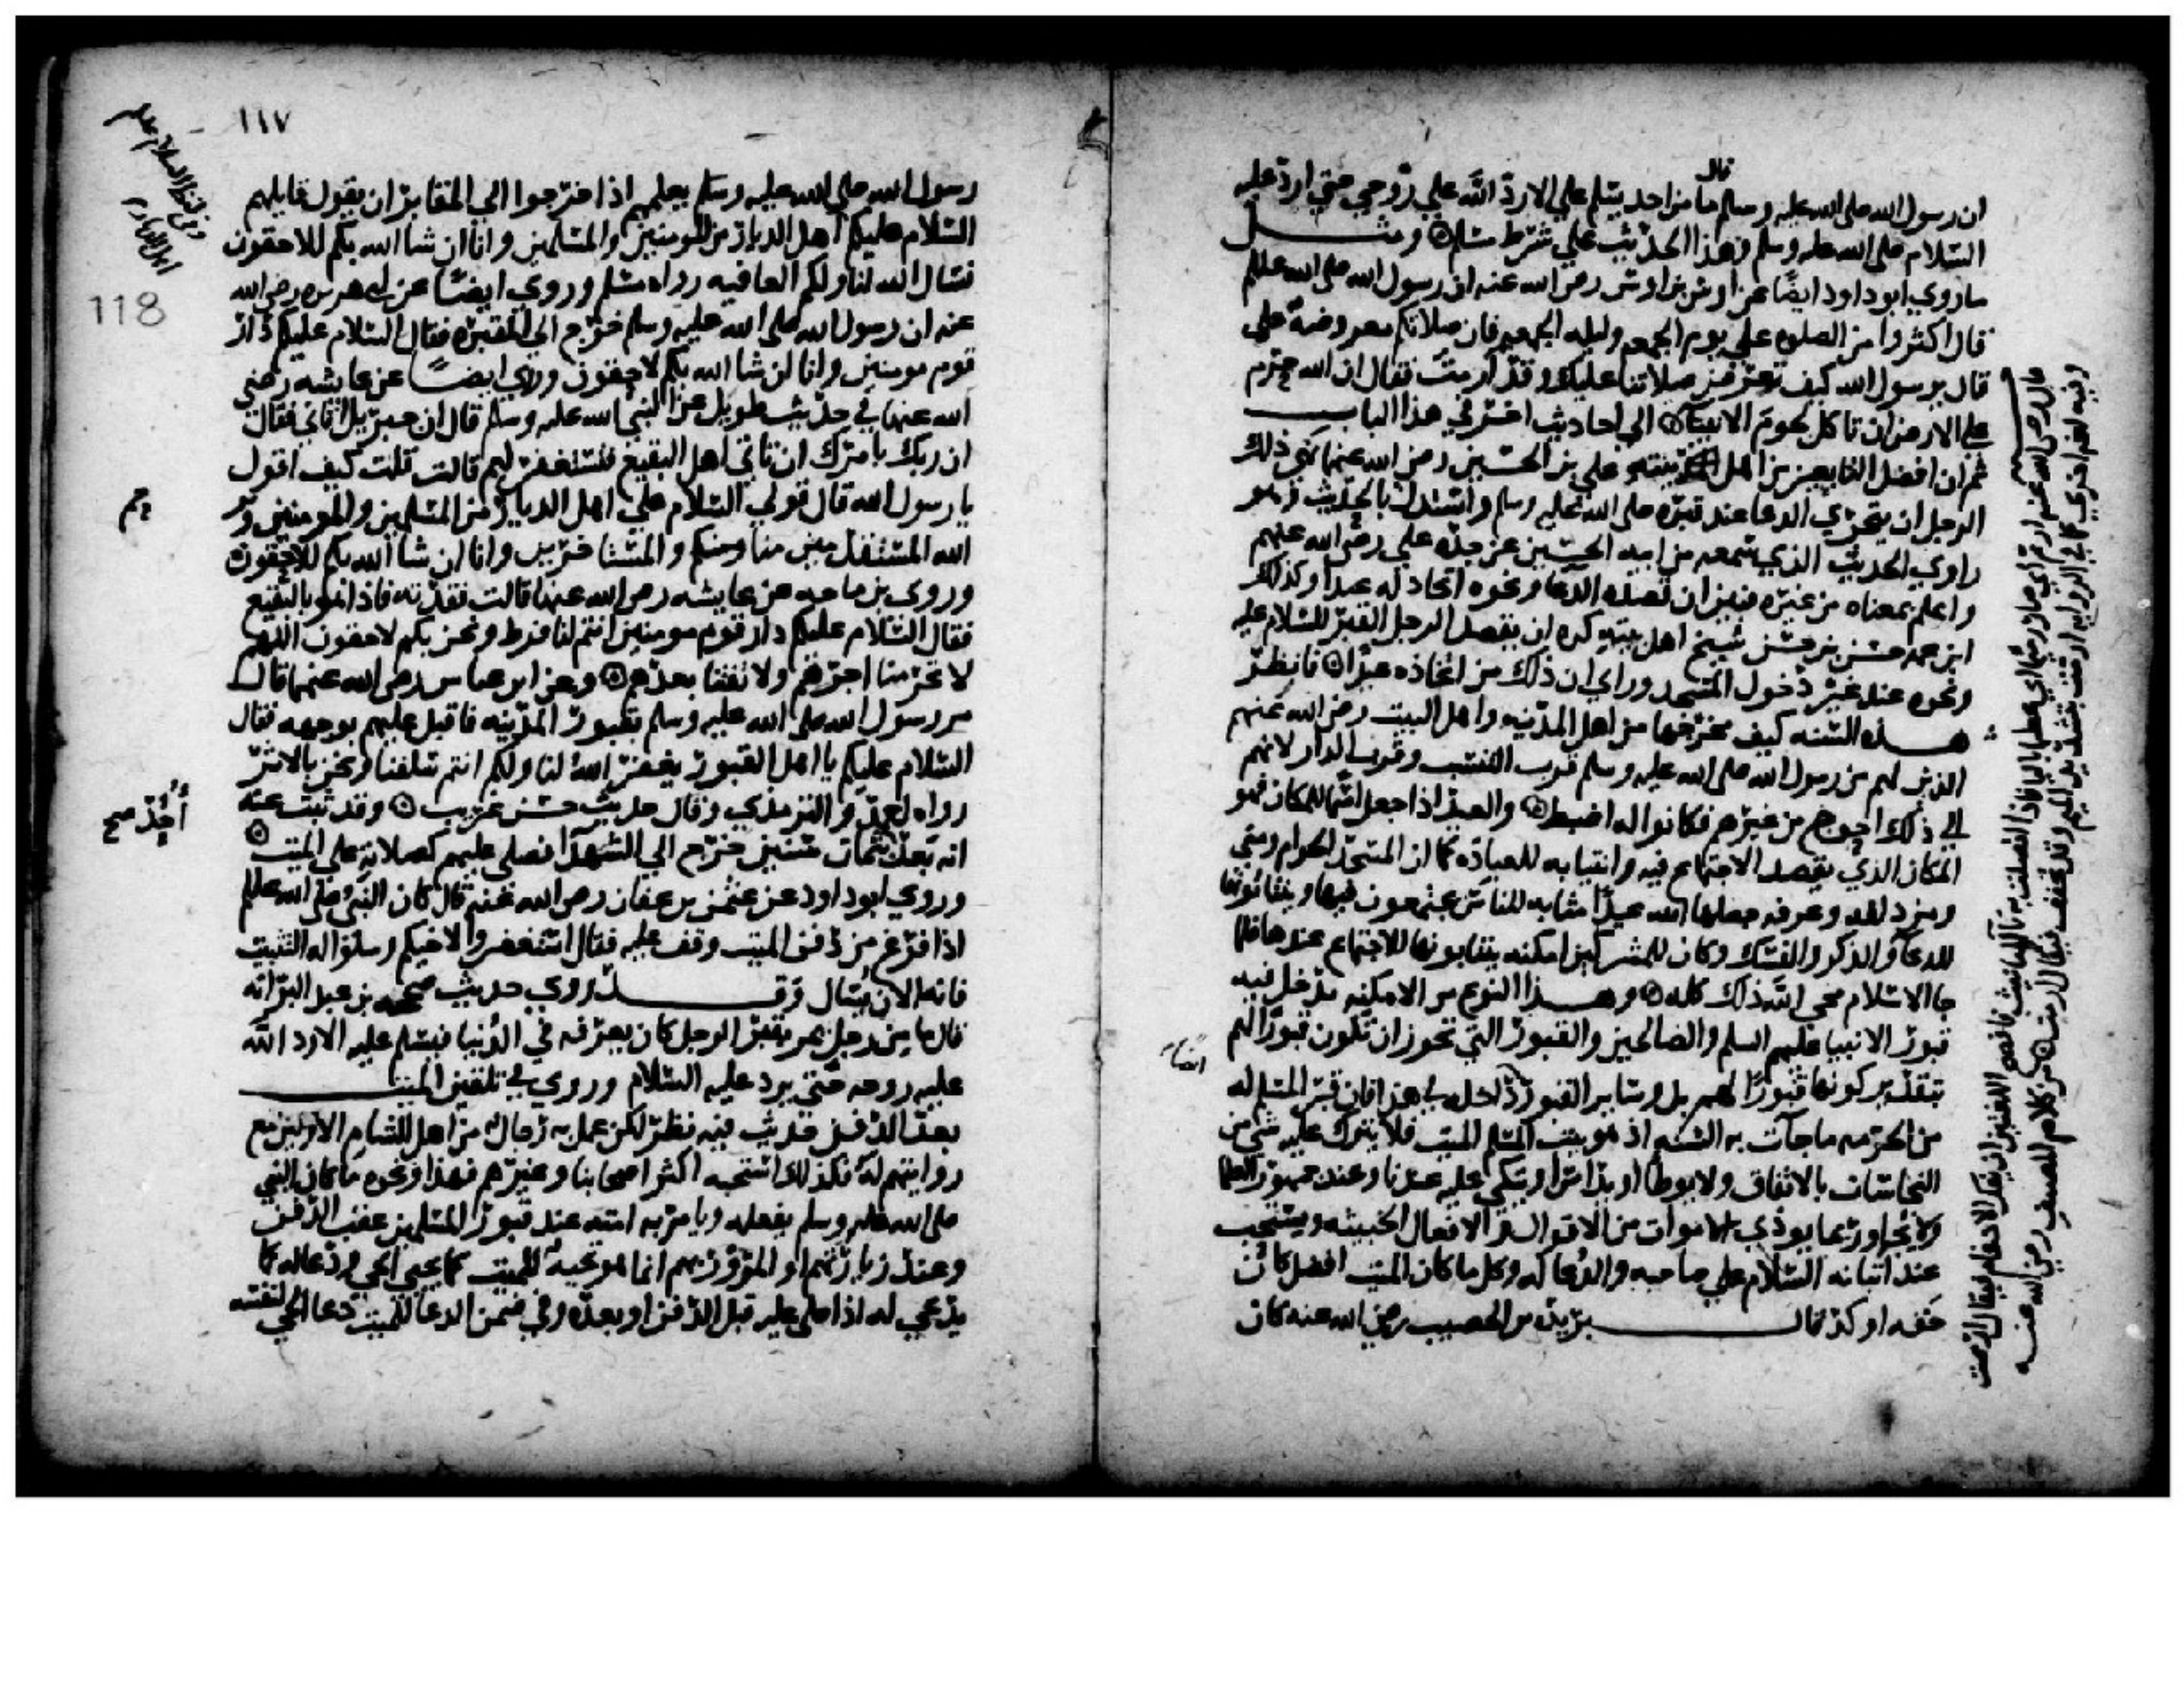 قال
ان رسول الله صلى الله عليه وسلم ما من احد يسلم علي الا رد الله علي روحي حتي ارد عليه
السلام صلى الله عليه وسلم وهذا الحديث علي شرط مسلم ۞ ومثل
ما روي ابو داود ايضًا عن اوس بن اوس رضي الله عنه ان رسول الله صلى الله عليه وسلم
قال اكثروا من الصلوه علي يوم الجمعه وليله الجمعه فان صلاتكم معروضة علي
قال يرسول الله كيف تعرض صلاتنا عليك وقد ارمت فقال ان الله حرم
علي الارض ان تاكل لحوم الانبيا ۞ الي احاديث اخر في هذا الباب
ثم ان افضل التابعين من اهل بيته علي بن الحسين رضي الله عنهما نهي ذلك
الرجل ان يتحري الدعا عند قبره صلى الله عليه وسلم واستدل بالحديث وهو
راوي الحديث الذي سمعه من ابيه الحسين عن جده علي رضي الله عنهم
واعلم بمعناه من غيره فبين ان قصده الدعا ونحوه اتخاذ له عيدا وكذلك
ابن عمه حسن بن حسن شيخ اهل بيته كره ان يقصد الرجل القبر للسلام عليه
ونحوه عند غير دخول المسجد وراي ان ذلك من اتخاذه عيدًا ۞ فانظر
هذه السنه كيف مخرجها من اهل المدينه واهل البيت رضي الله عنهم
الذين لهم من رسول الله صلى الله عليه وسلم قرب النسب وقرب الدار لانهم
الي ذلك احوج من غيرهم فكانوا له اضبط ۞ والعيد اذا جعل اسما للمكان فهو
المكان الذي يقصد الاجتماع فيه وانتيابه للعبادة كما ان المسجد الحرام ومني
ومزدلفه وعرفه جعلها الله عيدًا مثابه للناس يجتمعون فيها وينتابونها
للدعا والذكر والنسك وكان للمشركين امكنه ينتابونها للاجتماع عندها فلما
جا الاسلام محي الله ذلك كله ۞ وهذا النوع من الامكنه يدخل فيه
قبور الانبيا عليهم السلم والصالحين والقبور التي تجوز ان تكون قبورًا لهم
بتقدير كونها قبورًا لهم بل وساير القبور داخله في هذا فان قبر المسلم له
من الحرمه ما جآت به السنه اذ هو بيت المسلم الميت فلا يترك عليه شي من
النجاسات بالاتفاق ولا يوطا ولا يداس ولا يتكي عليه عندنا وعند جمهور العلما
ولا يجاور بما يوذي الاموات من الاقوال والافعال الخبيثه ويستحب
عند اتيانه السلام علي صاحبه والدعا له وكل ما كان الميت افضل كان
حقه اوكد قال بريده بن الحصيب رضي الله عنه كان
١١٧
118
رسول الله صلى الله عليه وسلم يعلمهم اذا خرجوا الي المقابر ان يقول قايلهم
السلام عليكم اهل الديار من المومنين والمسلمين وانا ان شا الله بكم للاحقون
نسال الله لنا ولكم العافيه رواه مسلم وروي ايضًا عن ابي هريره رضي الله
عنه ان رسول الله صلى الله عليه وسلم خرج الي المقبره فقال السلام عليكم دار
قوم مومنين وانا ان شا الله بكم لاحقون وروي ايضًا عن عايشه رضي
الله عنها في حديث طويل عن النبي صلى الله عليه وسلم قال ان جبريل اتاني فقال
ان ربك يامرك ان تاتي اهل البقيع فتستغفر لهم قالت قلت كيف اقول
يا رسول الله قال قولي السلام علي اهل الديار من المسلمين والمومنين
الله المستقدمين منا ومنكم والمستاخرين وانا ان شا الله بكم للاحقون
وروي بن ماجه عن عايشه رضي الله عنها قالت فقدته فاذا هو بالبقيع
فقال السلام عليكم دار قوم مومنين انتم لنا فرط ونحن بكم لاحقون اللهم
لا تحرمنا اجرهم ولا تفتنا بعدهم ۞ وعن ابن عباس رضي الله عنهما قال
مر رسول الله صلى الله عليه وسلم بقبور المدينه فاقبل عليهم بوجهه فقال
السلام عليكم يا اهل القبور يغفر الله لنا ولكم انتم سلفنا ونحن بالاثر
رواه احمد والترمذي وقال حديث حسن غريب ۞ وقد ثبت عنه
انه بعد ثمان سنين خرج الي الشهدا فصلي عليهم كصلاته علي الميت ۞
وروي ابو داود عن عثمن بن عفان رضي الله عنه قال كان النبي صلى الله عليه وسلم
اذا فرغ من دفن الميت وقف عليه فقال استغفروا لاخيكم وسلوا له التثبيت
فانه الان يسال وقد روي حديث صححه بن عبد البر انه
قال ما من رجل يمر بقبر الرجل كان يعرفه في الدنيا فيسلم عليه الا رد الله
عليه روحه حتي يرد عليه السلام وروي في تلقين الميت
بعد الدفن حديث فيه نظر لكن عمل به رجال من اهل الشام الاولين مع
روايتهم له فكذلك استحبه اكثر اصحابنا وغيرهم فهذا ونحوه ما كان النبي
صلى الله عليه وسلم يفعله ويامر به امته عند قبور المسلمين عقب الدفن
وعند زيارتهم او المرور بهم انما هو تحيه للميت كما يحيي الحي ودعا له كما
يدعي له اذا صلي عليه قبل الدفن او بعده وفي ضمن الدعا للميت دعا الحي لنفسه